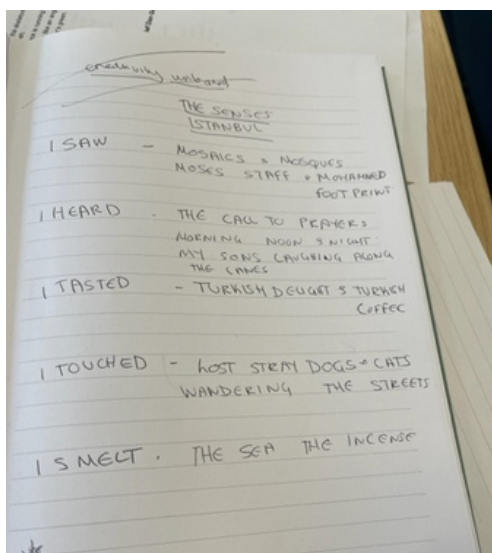 creativity unbound
THE SENSES
ISTANBUL
I SAW - MOSAICS & MOSQUES
MOSES STAFF & MOHAMMED
FOOT PRINT
I HEARD - THE CALL TO PRAYERS
MORNING NOON & NIGHT
MY SONS LAUGHING ALONG
THE LANES
I TASTED - TURKISH DELIGHT & TURKISH
COFFEE
I TOUCHED - LOST STRAY DOGS & CATS
WANDERING THE STREETS
I SMELT . THE SEA THE INCENSE